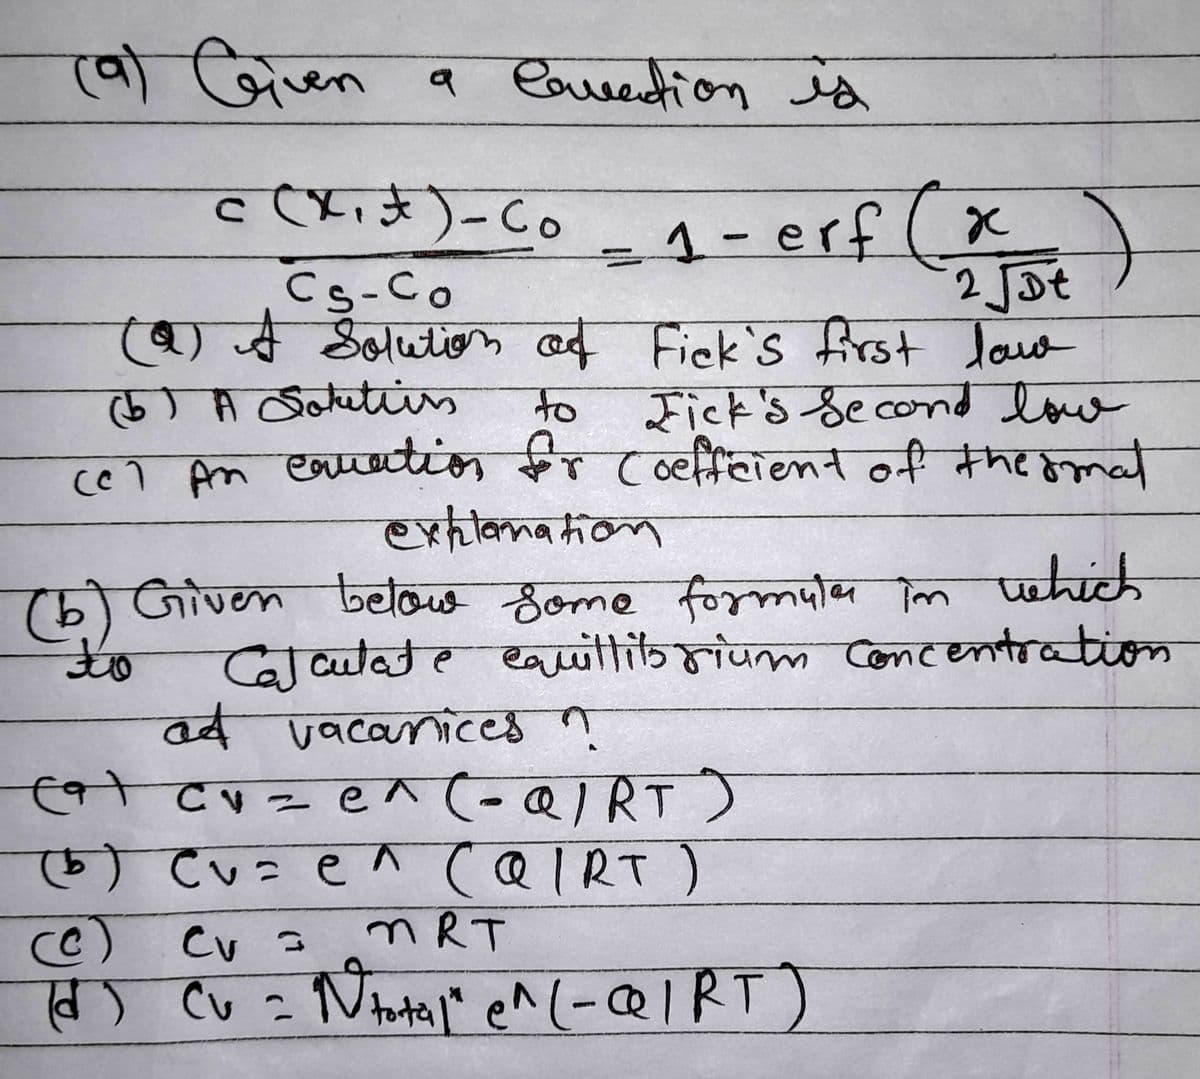 (a) Given a equation is
c(x,t)-Co / Cs-Co = 1 - erf(x / 2√Dt)
(a) A Solution of Fick's first law
(b) A Solution to Fick's Second law
(c) An equation for Coefficient of thermal
explanation
(b) Given below some formula in which
to Calculate equillibrium Concentration
of vacanices ?
(a) Cv = e^(-Q/RT)
(b) Cv = e^(Q/RT)
(c) Cv = nRT
(d) Cv = Ntotal* e^(-Q/RT)